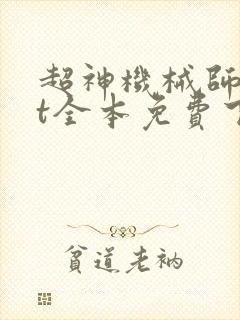 超神機械師
t全本免費下
貧道老衲